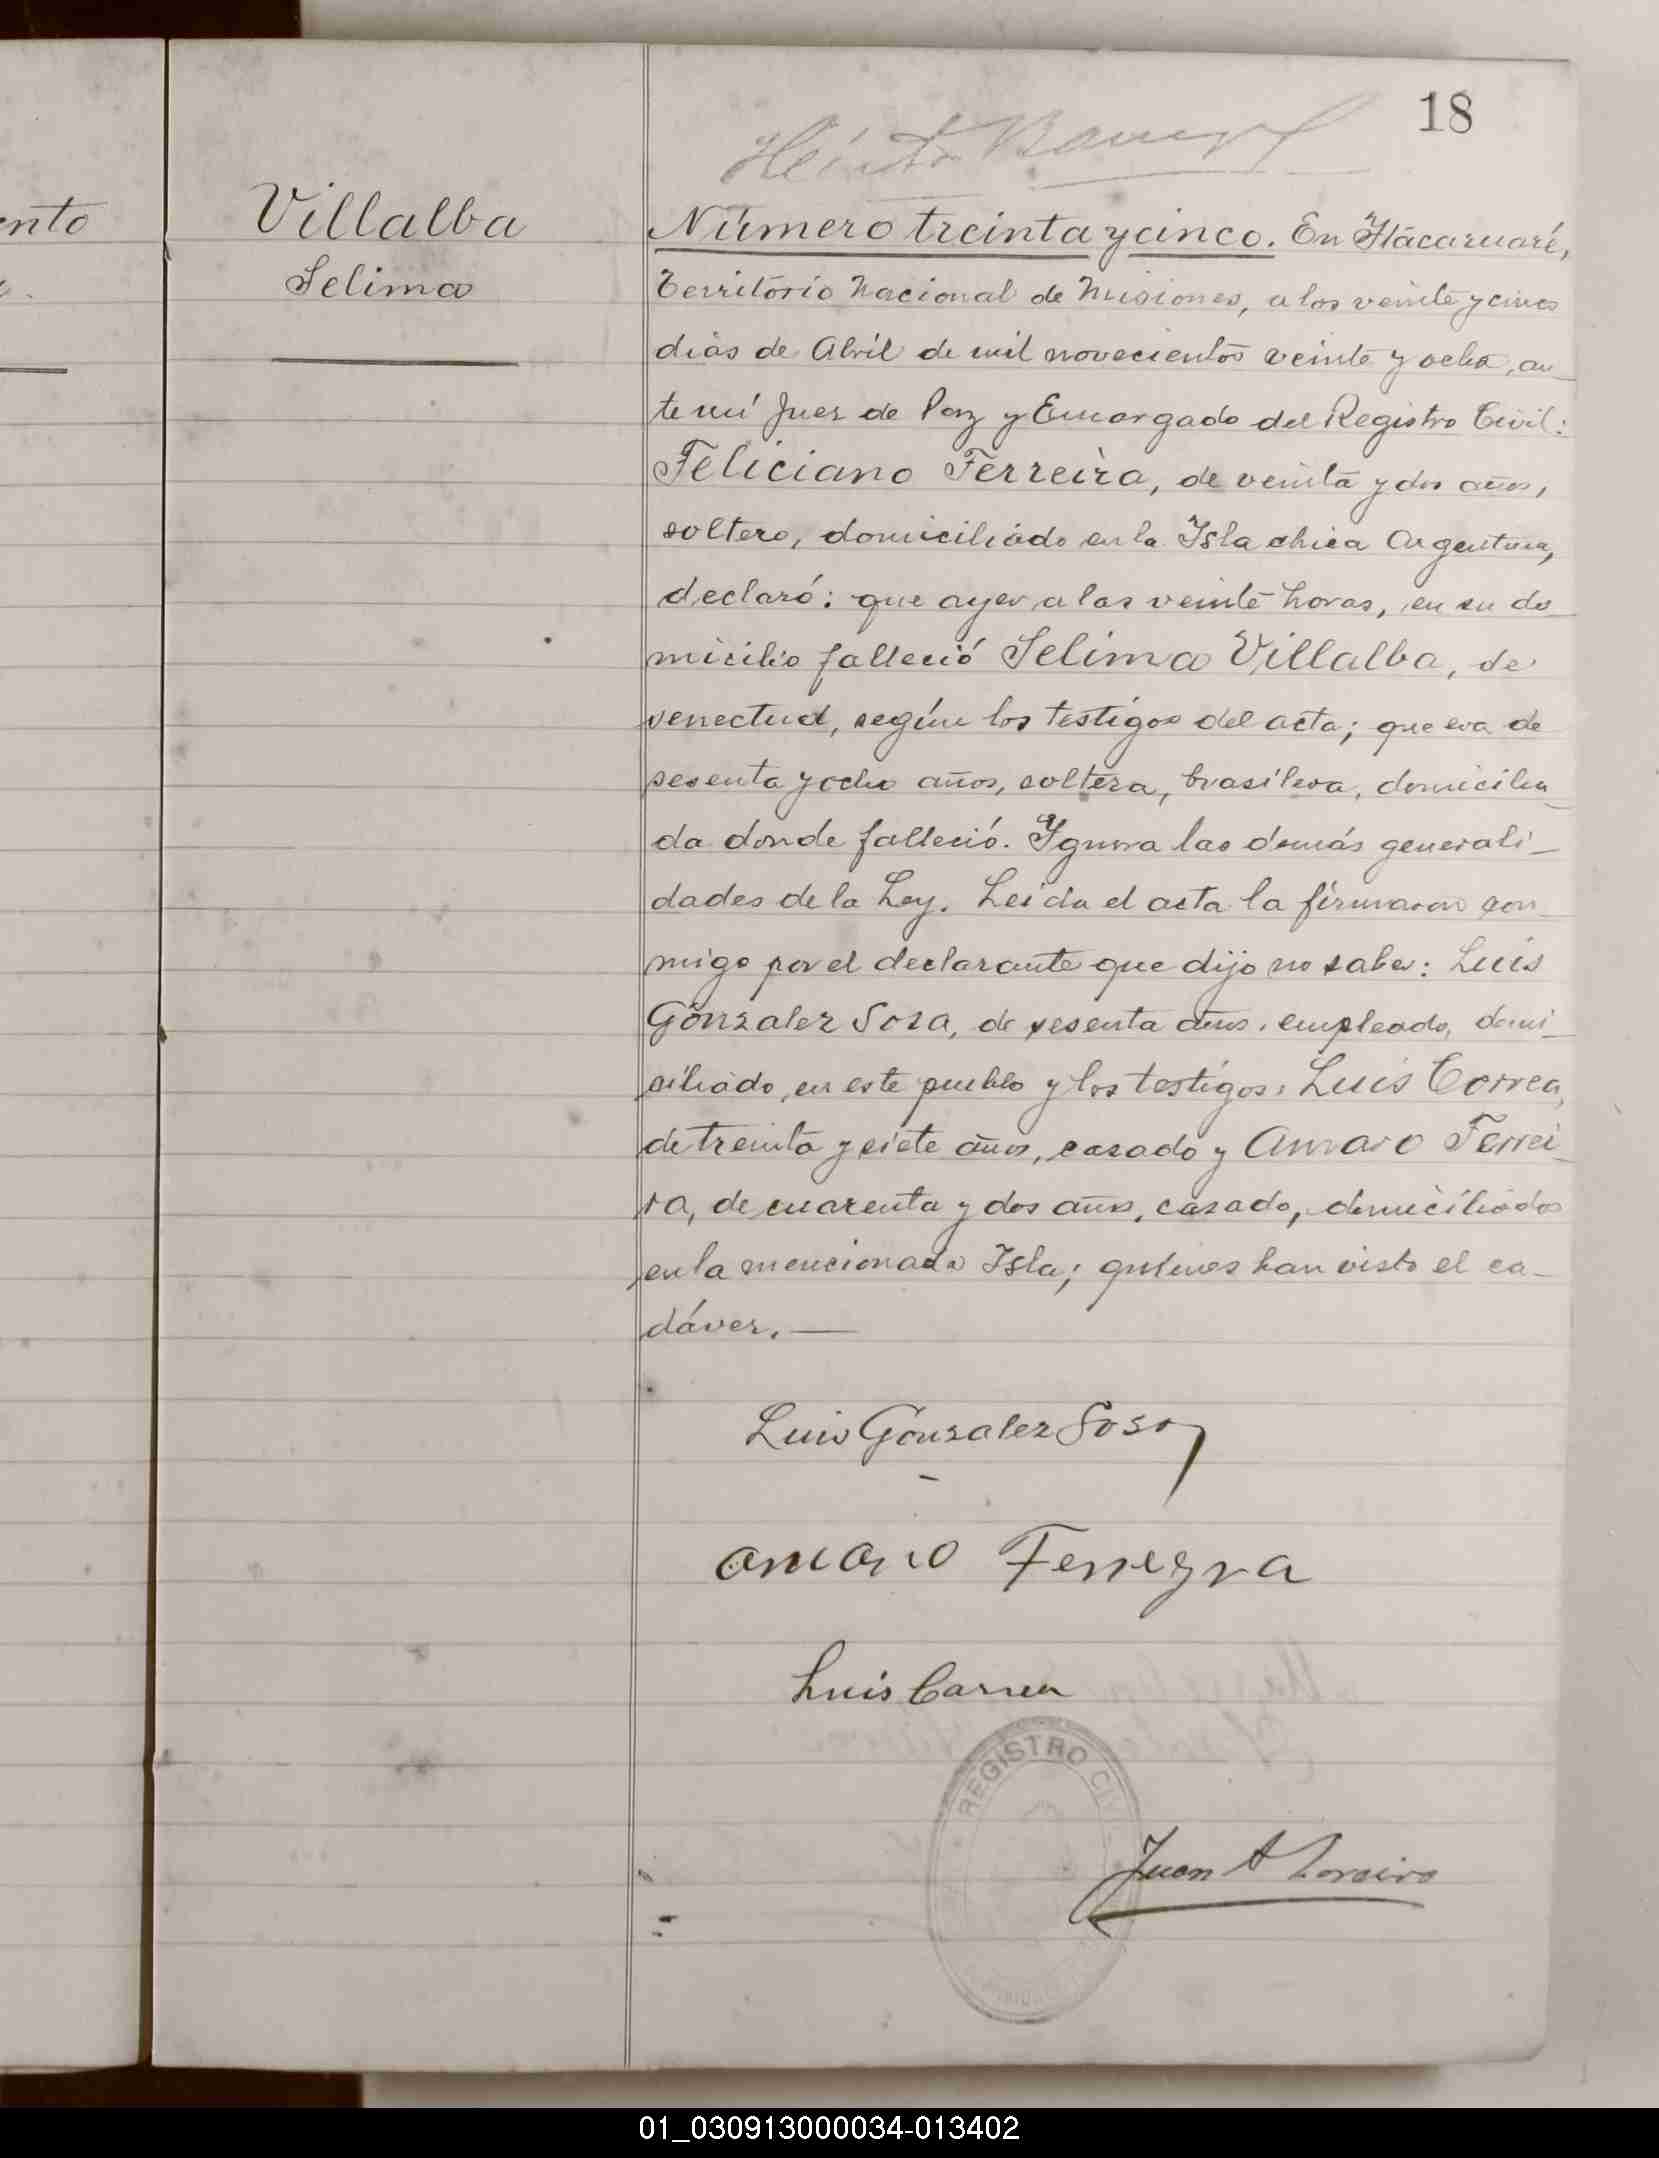 18
Villalba
Selima
ento
Número treinta y cinco. En Itacaruaré,
Territorio Nacional de Misiones, a los veinte y cinco
dias de Abril de mil novecientos veinte y ocho, an
te mi Juez de Paz y Encargado del Registro Civil:
Feliciano Ferreira, de veinta y dos años,
soltero, domiciliado en la Isla chica Argentina,
declaró: que ayer a las veinte horas, en su do
micilio falleció Selima Villalba, de
senectud, según los testigos del acta; que era de
sesenta y ocho años, soltera, brasilera, domicilia
da donde falleció. Ygnora las demás generali-
dades de la Ley. Leida el acta la firmaron con
migo por el declarante que dijo no saber: Luis
Gonzalez Sosa, de sesenta años, empleado, domi-
ciliado en este pueblo y los testigos: Luis Correa,
de treinta y siete años, casado y Amaro Ferrei-
ra, de cuarenta y dos años, casado, domiciliados
en la mencionada Isla; quienes han visto el ca-
dáver. —
Luis Gonzalez Sosa
amaro Ferreyra
Luis Carrea
REGISTRO CIVIL
Juan A Loreiro
01_030913000034-013402